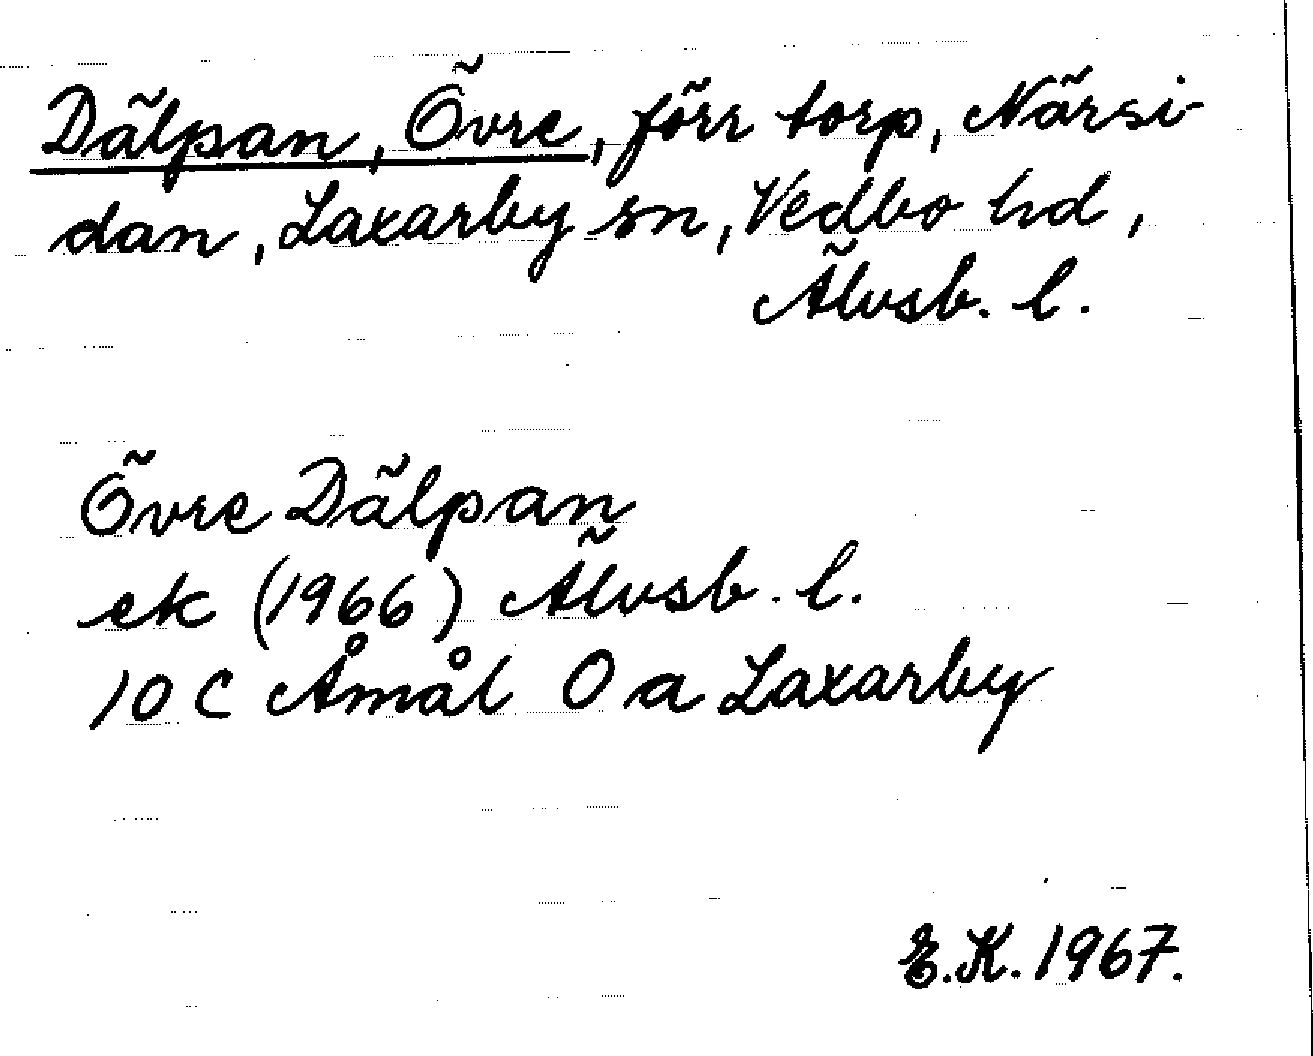 Dälpan, Övre, förr torp, Närsi-
dan, Laxarby sn, Vedbo hd,
Älvsb. l.
Övre Dälpan
ek (1966) Älvsb. l.
10 C Åmål 0 a Laxarby
E.K. 1967.